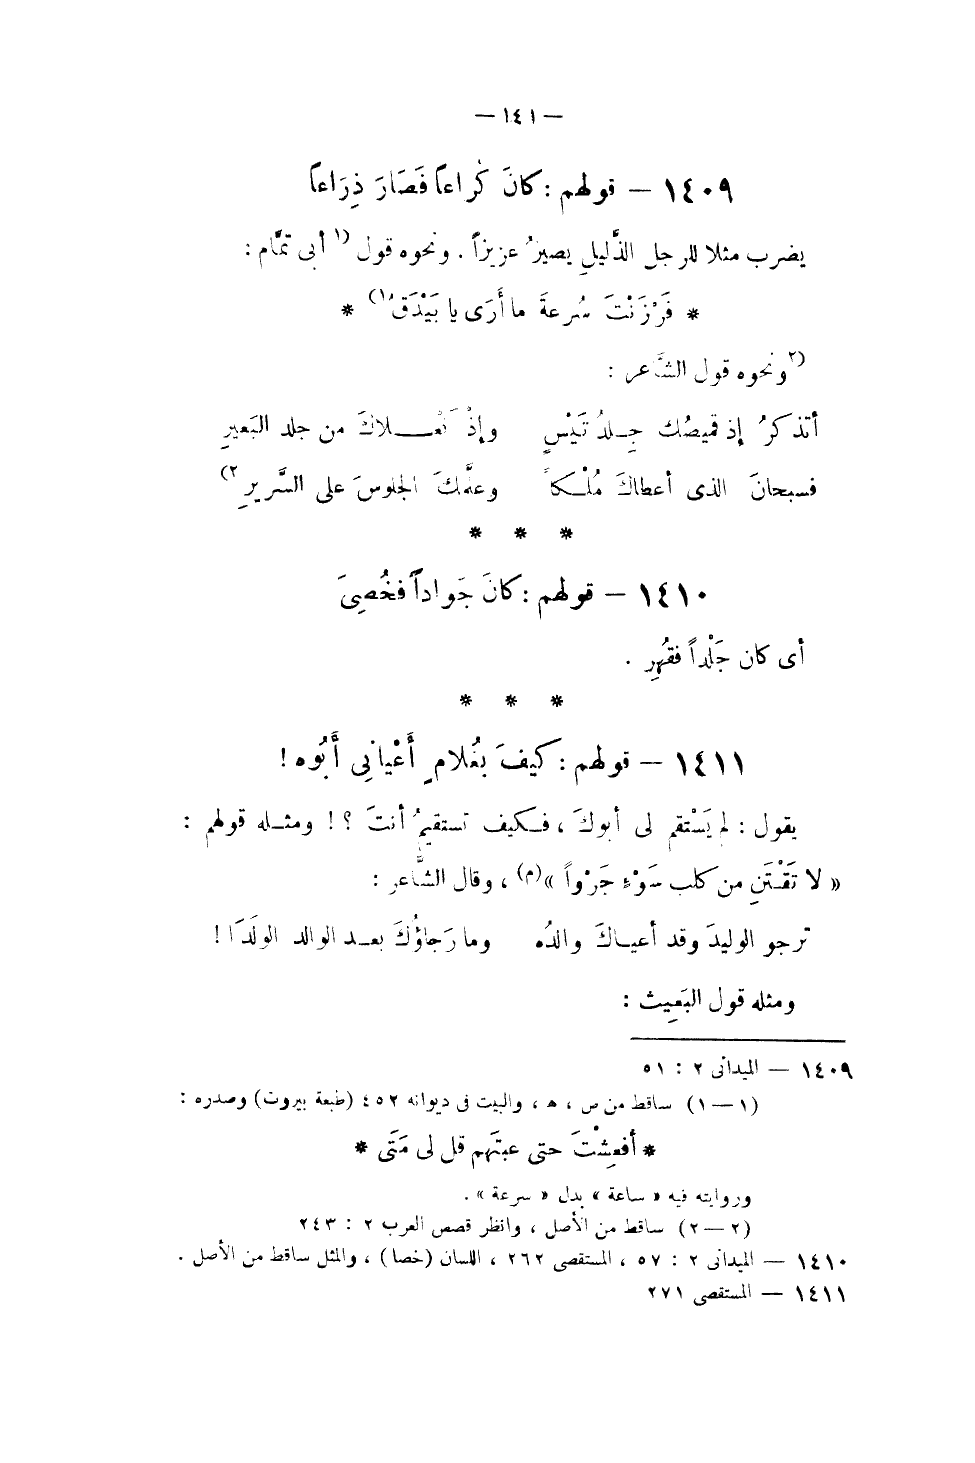 — ١٤١ —
١٤٠٩ — قولهم : كانَ كُراعاً فَصَارَ ذِرَاعاً
يضرب مثلا للرجل الذَّليلِ يصيرُ عزيزاً . ونحوه قول (١ أبى تمَّام :
* فَرْزَنْتَ سُرعةَ ما أَرَى يا بَيْدَقُ ١) *
(٢ ونحوه قول الشَّاعر :
أتذكرُ إذ قميصُك جِلدُ تَيْسٍ وإذْ نَعْلاكَ من جلد البَعيرِ
فسبحانَ الذى أعطاكَ مُلْكاً وعلَّمكَ الجلوسَ على السَّريرِ ٢)
* * *
١٤١٠ — قولهم : كانَ جَواداً فخُصِىَ
أى كان جَلْداً فقُهِر .
* * *
١٤١١ — قولهم : كيفَ بغُلامٍ أَعْيانِى أَبُوه !
يقول : لم يَسْتقم لى أبوكَ ، فكيف تستقيمُ أنتَ ؟ ! ومثله قولهم :
« لا تَقْتَنِ من كلب سَوْءٍ جَرْواً »(م) ، وقال الشَّاعر :
ترجو الوليدَ وقد أعياكَ والدُه وما رَجاؤُكَ بعد الوالد الولَدَا !
ومثله قول البَعِيث :
١٤٠٩ — الميدانى ٢ : ٥١
(١ — ١) ساقط من ص ، ھ ، والبيت فى ديوانه ٤٥٢ (طبعة بيروت) وصدره :
* أفعِشْتَ حتى عبتَهم قل لى مَتَى *
وروايته فيه « ساعة » بدل « سرعة » .
(٢ — ٢) ساقط من الأصل ، وانظر قصص العرب ٢ : ٢٤٣
١٤١٠ — الميدانى ٢ : ٥٧ ، المستقصى ٢٦٢ ، اللسان (خصا) ، والمثل ساقط من الأصل .
١٤١١ — المستقصى ٢٧١